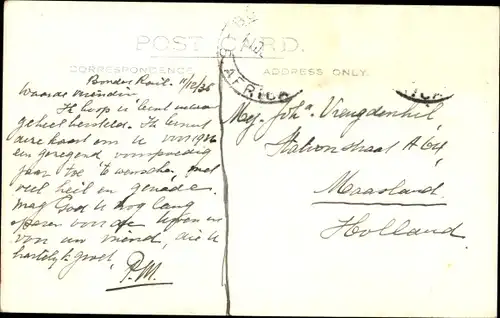 POST CARD.
CORRESPONDENCE
ADDRESS ONLY.
AFRICA
RICA
11/12/36
Waarde vriendin
Ik hoop u bent weer
geheel hersteld. Ik
deze kaart om u voor 1937
een gezegend, voorspoedig
jaar toe te wenschen, met
veel heil en genade.
Mag God u nog lang
sparen voor de uwen en
van uw vriend, die u
hartelijk groet,
P.M.
Mej. Joha. Vreugdenhil,
straat A 64,
Maasland
Holland.